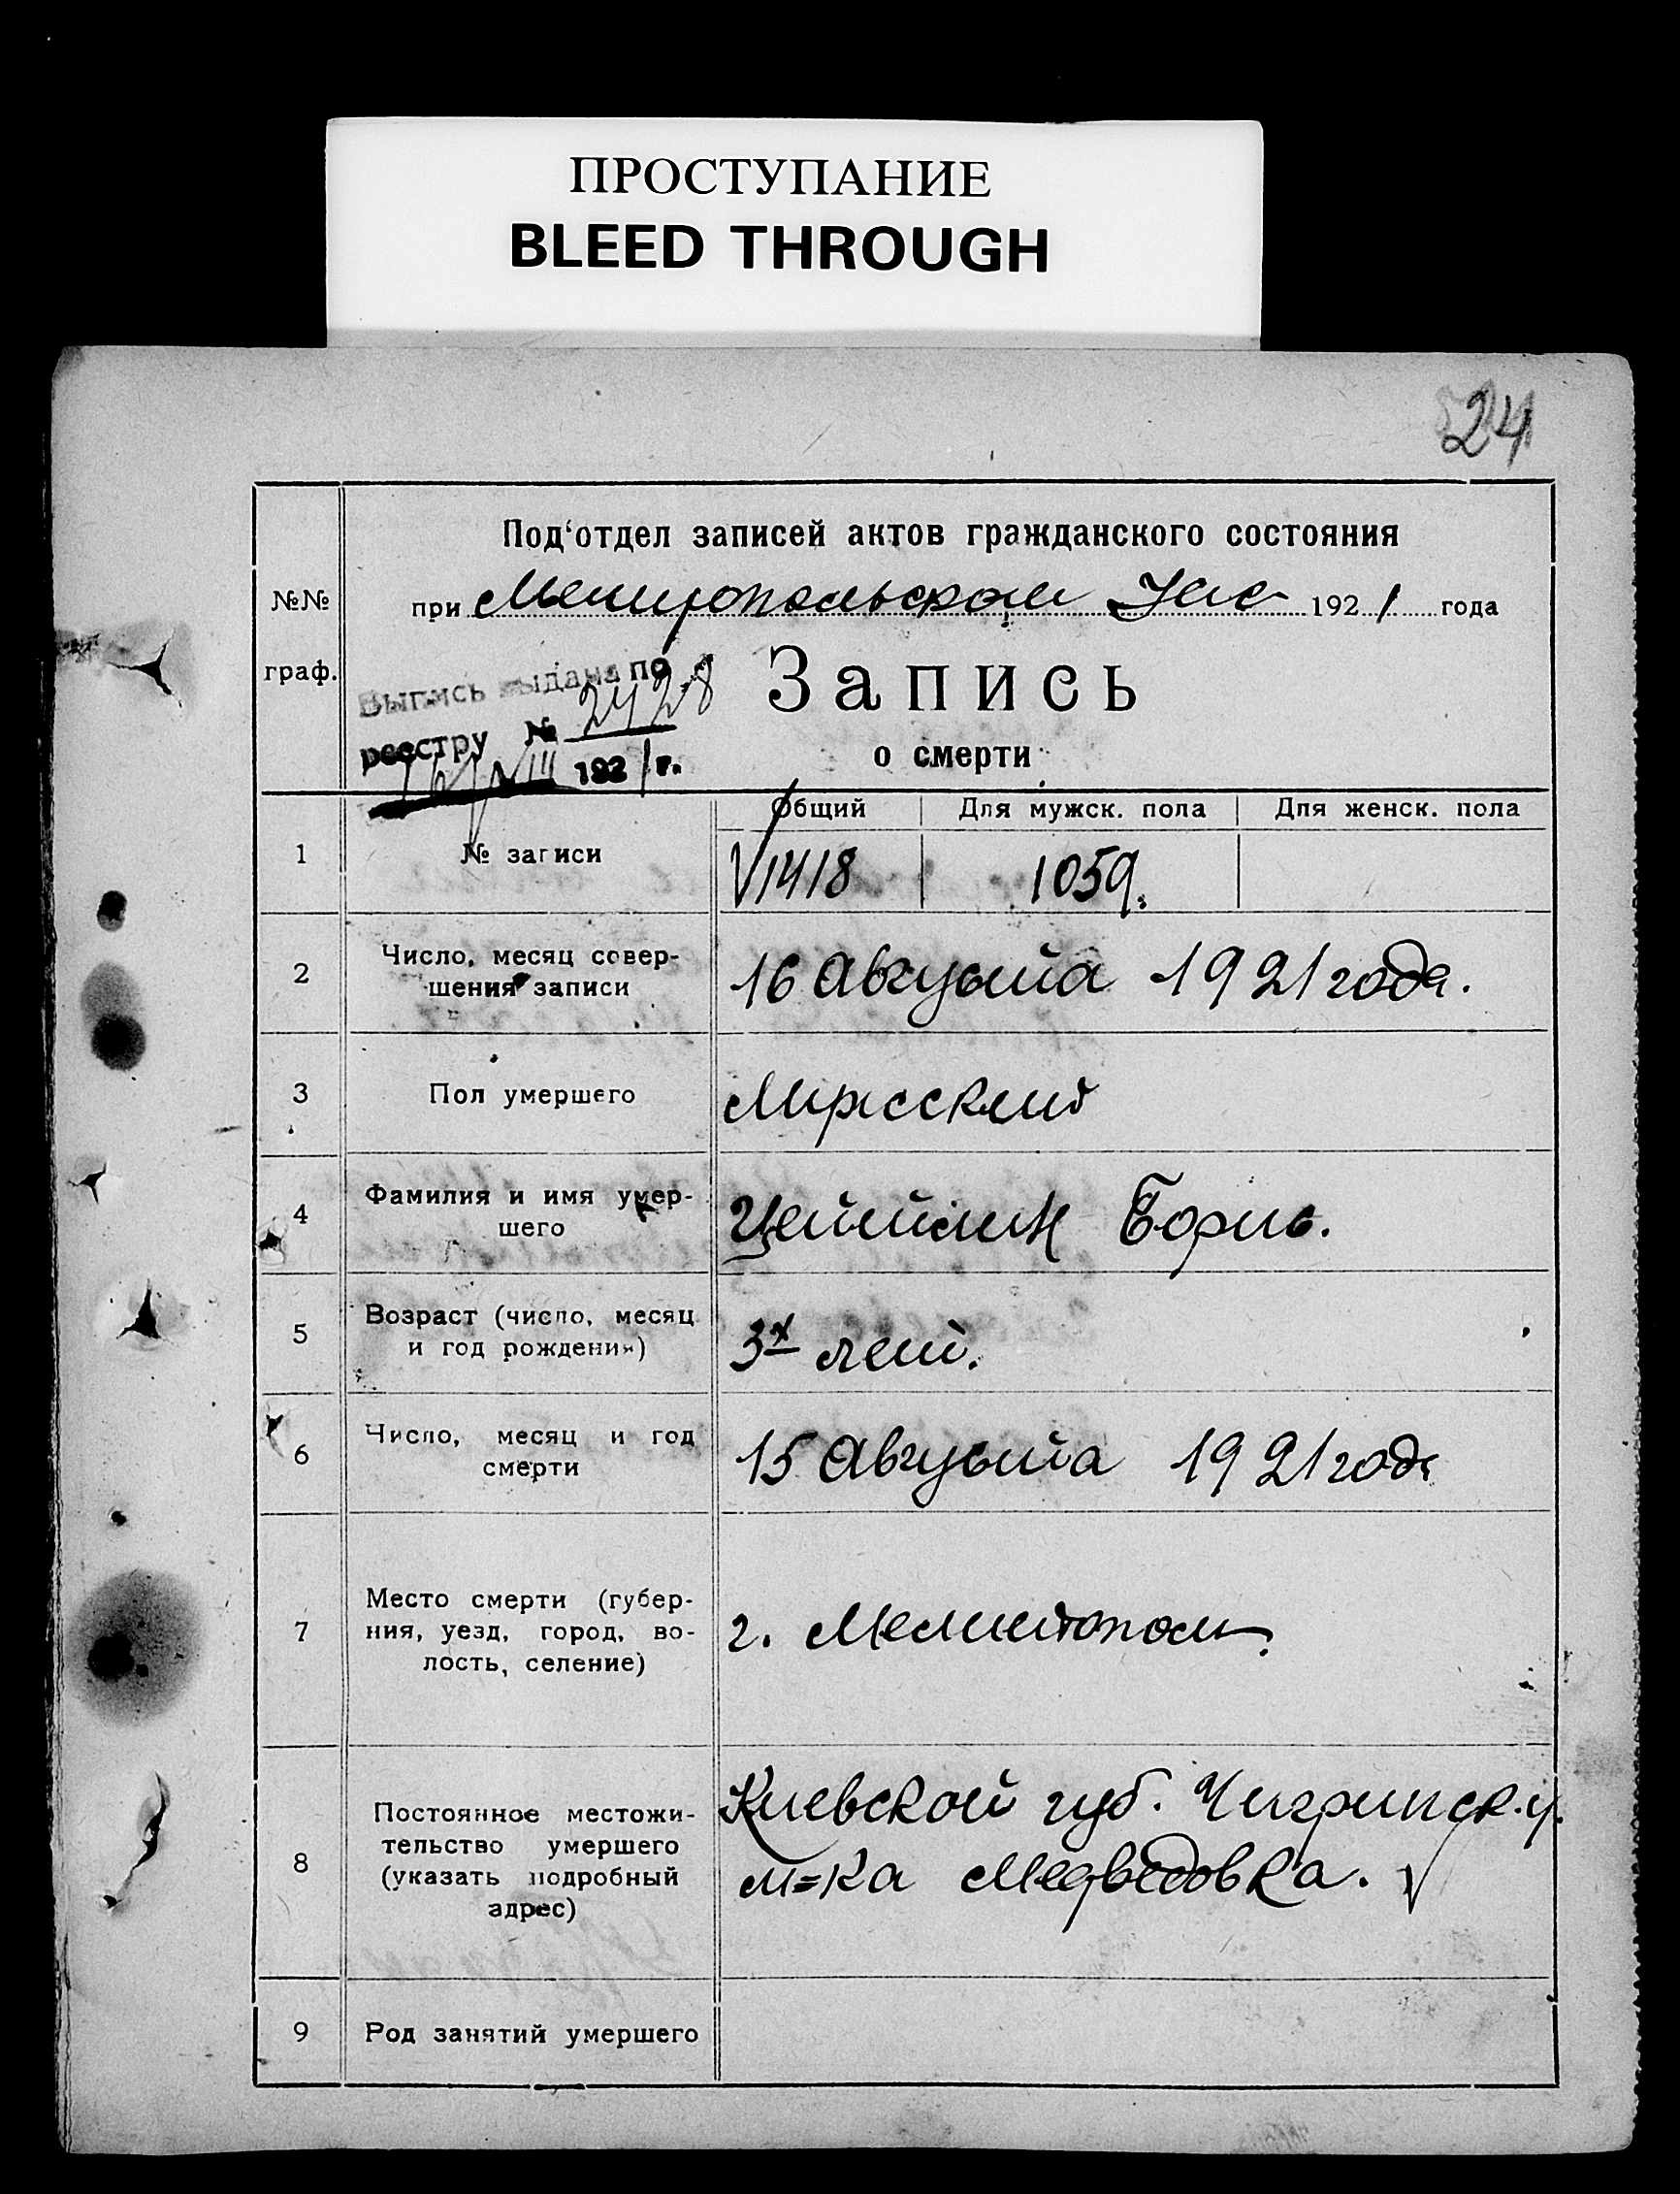 ПРОСТУПАНИЕ
BLEED THROUGH
24
Под‘отдел записей актов гражданского состояния
№№ граф.
при Мелитопольском 1921 года
Выпись выдана по
реестру № 2428
16/VIII 1921 г.
Запись
о смерти
Общий Для мужск. пола Для женск. пола
1 № записи 1418 1059.
2 Число, месяц совер-
шения записи 16 Августа 1921 года.
3 Пол умершего Мужский
4 Фамилия и имя умер-
шего Цейтлин Борис.
5 Возраст (число, месяц
и год рождения) 3х лет.
6 Число, месяц и год
смерти 15 Августа 1921 года
7 Место смерти (губер-
ния, уезд, город, во-
лость, селение) г. Мелитополь.
8 Постоянное местожи-
тельство умершего
(указать подробный
адрес) Киевской губ. Чигринск. у.
м=ка Медведовка.
9 Род занятий умершего